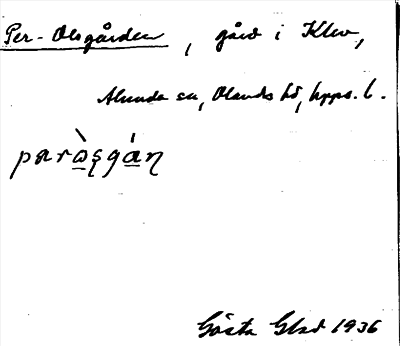 Per-Olsgården, gård i Klev,
Alunda sn, Olands hd, Upps. l.
parò̱şgá̱ɳ
Gösta Glad 1936